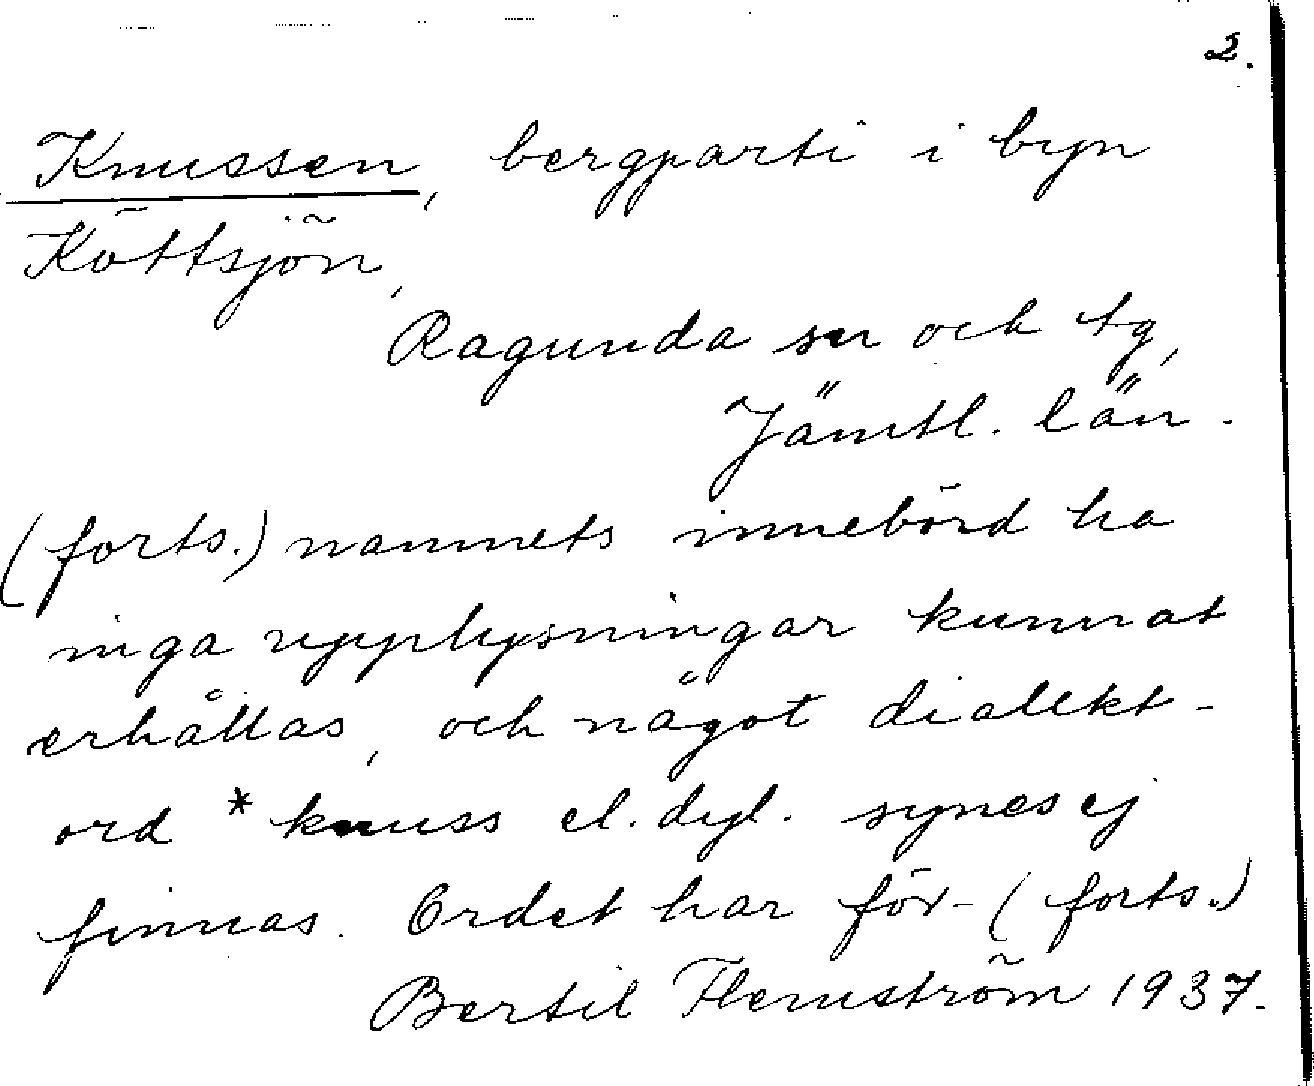 2.
Knussen, bergparti i byn
Köttsjön,
Ragunda sn och tg,
Jämtl. län.
(forts.) namnets innebörd ha
inga upplysningar kunnat
erhållas, och något dialekt-
ord *knuss el. dyl. synes ej
finnas. Ordet har för- (forts.)
Bertil Flemström 1937.